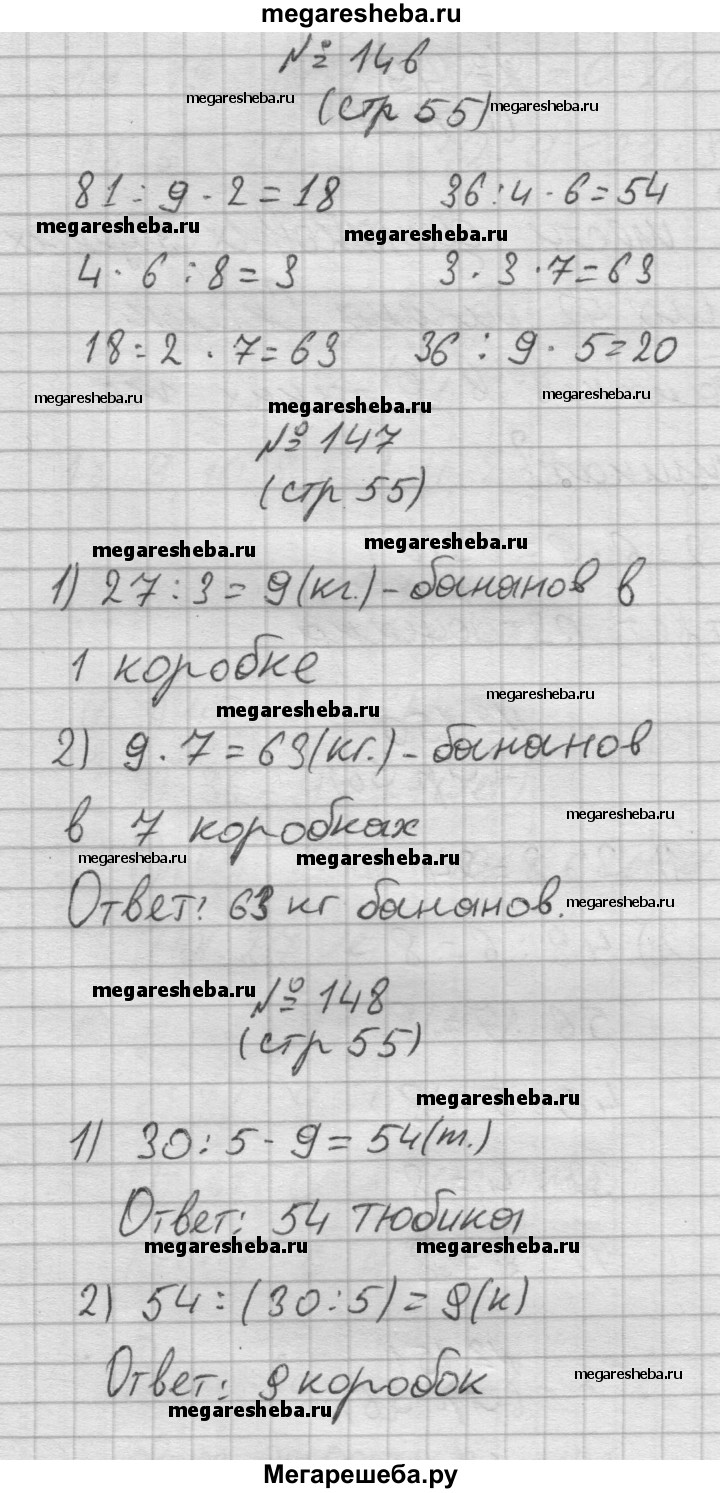 megaresheba.ru
№ 146
megaresheba.ru (стр 55) megaresheba.ru
81 : 9 · 2 = 18 36 : 4 · 6 = 54
megaresheba.ru megaresheba.ru
4 · 6 : 8 = 3 3 · 3 · 7 = 63
18 : 2 · 7 = 63 36 : 9 · 5 = 20
megaresheba.ru megaresheba.ru megaresheba.ru
№ 147
(стр 55)
megaresheba.ru megaresheba.ru
1) 27 : 3 = 9 (кг.) - бананов в
1 коробке
megaresheba.ru megaresheba.ru
2) 9 · 7 = 63 (кг.) - бананов
в 7 коробках megaresheba.ru
megaresheba.ru megaresheba.ru
Ответ: 63 кг бананов. megaresheba.ru
megaresheba.ru № 148
(стр 55)
megaresheba.ru
1) 30 : 5 · 9 = 54 (т.)
Ответ: 54 тюбика
megaresheba.ru megaresheba.ru
2) 54 : (30 : 5) = 9 (к)
Ответ: 9 коробок megaresheba.ru
megaresheba.ru
Мегарешеба.ру